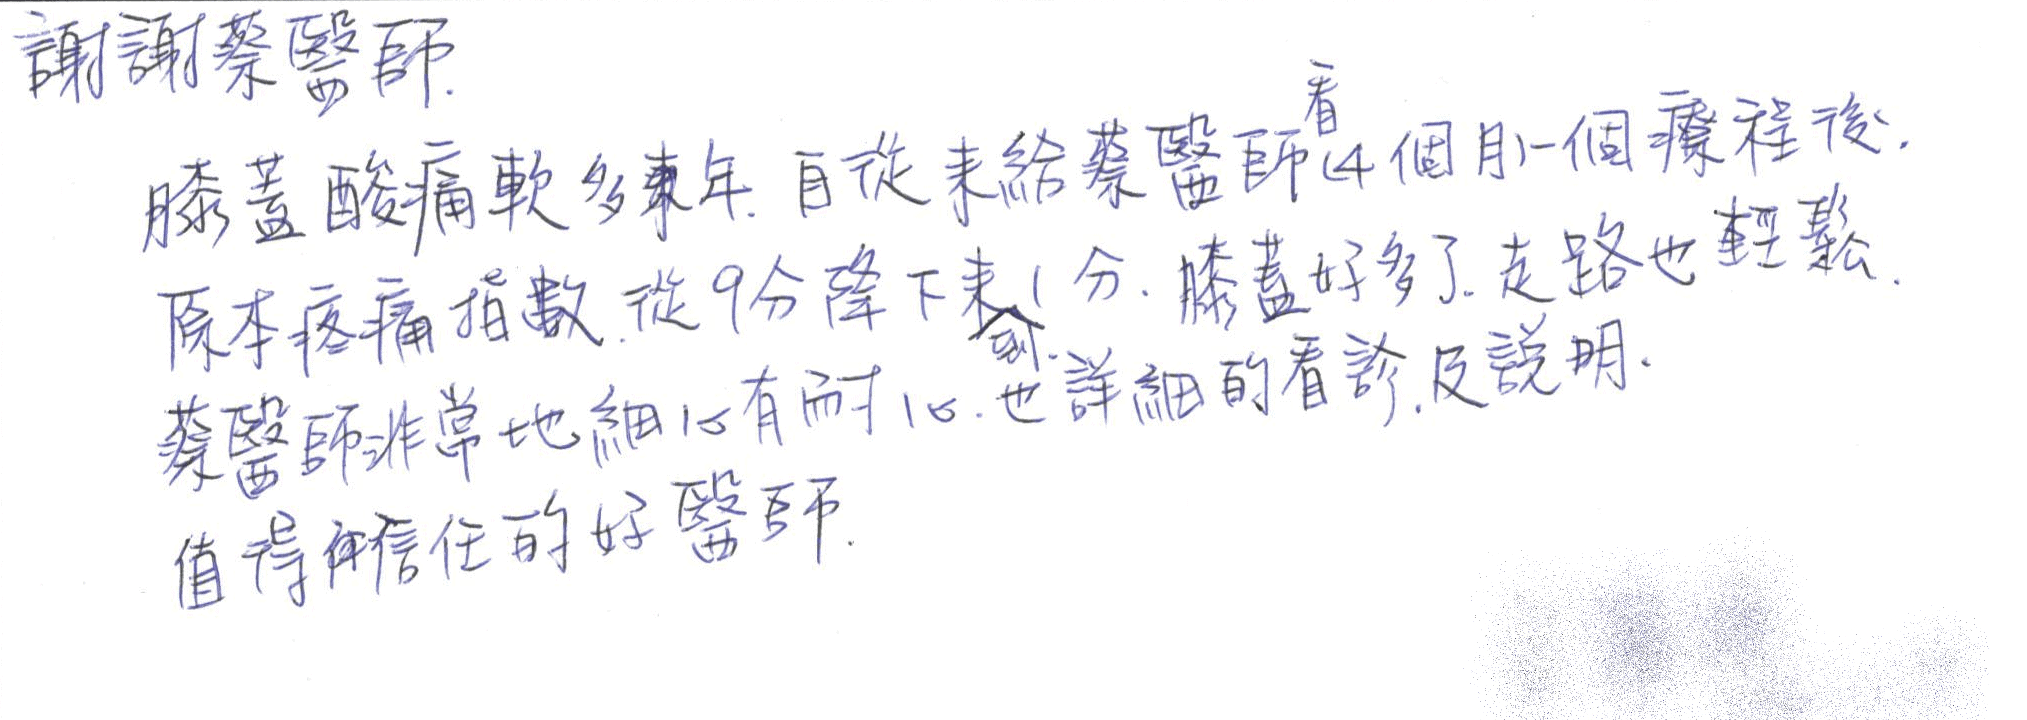 謝謝蔡醫師.
膝蓋酸痛軟多年.自從來給蔡醫師看(4個月)一個療程後.
原本疼痛指數.從9分降下來到1分.膝蓋好多了.走路也輕鬆.
蔡醫師非常地細心有耐心.也詳細的看診.及說明.
值得信任的好醫師.